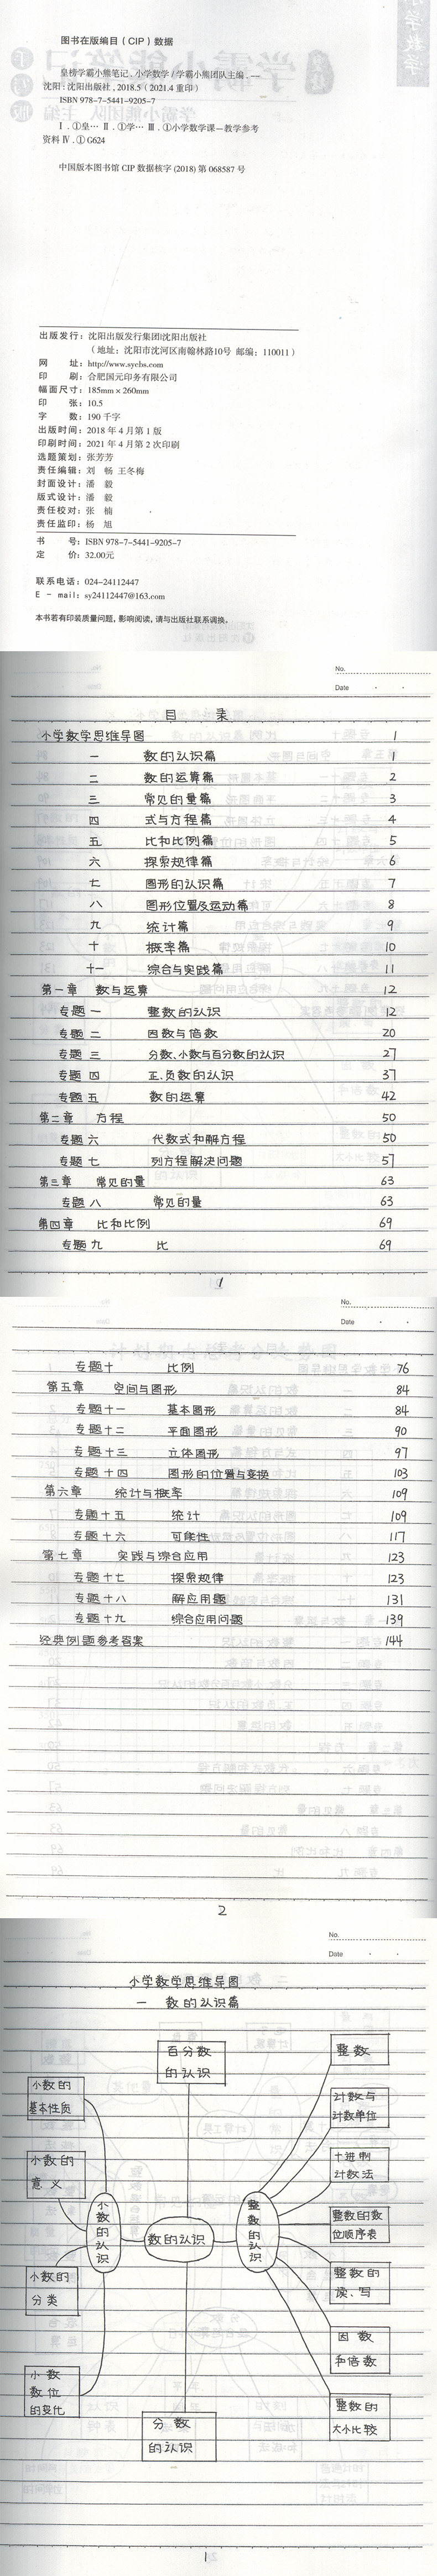 图书在版编目（CIP）数据
皇榜学霸小熊笔记．小学数学/学霸小熊团队主编．——
沈阳：沈阳出版社，2018.5（2021.4 重印）
ISBN 978-7-5441-9205-7
Ⅰ．①皇… Ⅱ．①学… Ⅲ．①小学数学课－教学参考
资料 Ⅳ．① G624
中国版本图书馆 CIP 数据核字 (2018) 第 068587 号
出版发行：沈阳出版发行集团|沈阳出版社
（地址：沈阳市沈河区南翰林路10号 邮编：110011）
网　　址：http://www.sychs.com
印　　刷：合肥国元印务有限公司
幅面尺寸：185mm × 260mm
印　　张：10.5
字　　数：190 千字
出版时间：2018 年 4 月第 1 版
印刷时间：2021 年 4 月第 2 次印刷
选题策划：张芳芳
责任编辑：刘　畅 王冬梅
封面设计：潘　毅
版式设计：潘　毅
责任校对：张　楠
责任监印：杨　旭
书　　号：ISBN 978-7-5441-9205-7
定　　价：32.00元
联系电话：024-24112447
E － mail：sy24112447@163.com
本书若有印装质量问题，影响阅读，请与出版社联系调换。
No.
Date
目　录
小学数学思维导图 1
一 数的认识篇 1
二 数的运算篇 2
三 常见的量篇 3
四 式与方程篇 4
五 比和比例篇 5
六 探索规律篇 6
七 图形的认识篇 7
八 图形位置及运动篇 8
九 统计篇 9
十 概率篇 10
十一 综合与实践篇 11
第一章 数与运算 12
专题一 整数的认识 12
专题二 因数与倍数 20
专题三 分数、小数与百分数的认识 27
专题四 正、负数的认识 37
专题五 数的运算 42
第二章 方程 50
专题六 代数式和解方程 50
专题七 列方程解决问题 57
第三章 常见的量 63
专题八 常见的量 63
第四章 比和比例 69
专题九 比 69
1
No.
Date
专题十 比例 76
第五章 空间与图形 84
专题十一 基本图形 84
专题十二 平面图形 90
专题十三 立体图形 97
专题十四 图形的位置与变换 103
第六章 统计与概率 109
专题十五 统计 109
专题十六 可能性 117
第七章 实践与综合应用 123
专题十七 探索规律 123
专题十八 解应用题 131
专题十九 综合应用问题 139
经典例题参考答案 144
2
No.
Date
小学数学思维导图
一 数的认识篇
百分数
的认识
小数的
基本性质
小数的
意义
小数的
分类
小数
数位
的变化
小数的认识
数的认识
整数的认识
分数
的认识
整数
计数与
计数单位
十进制
计数法
整数的数
位顺序表
整数的
读、写
因数
和倍数
整数的
大小比较
1